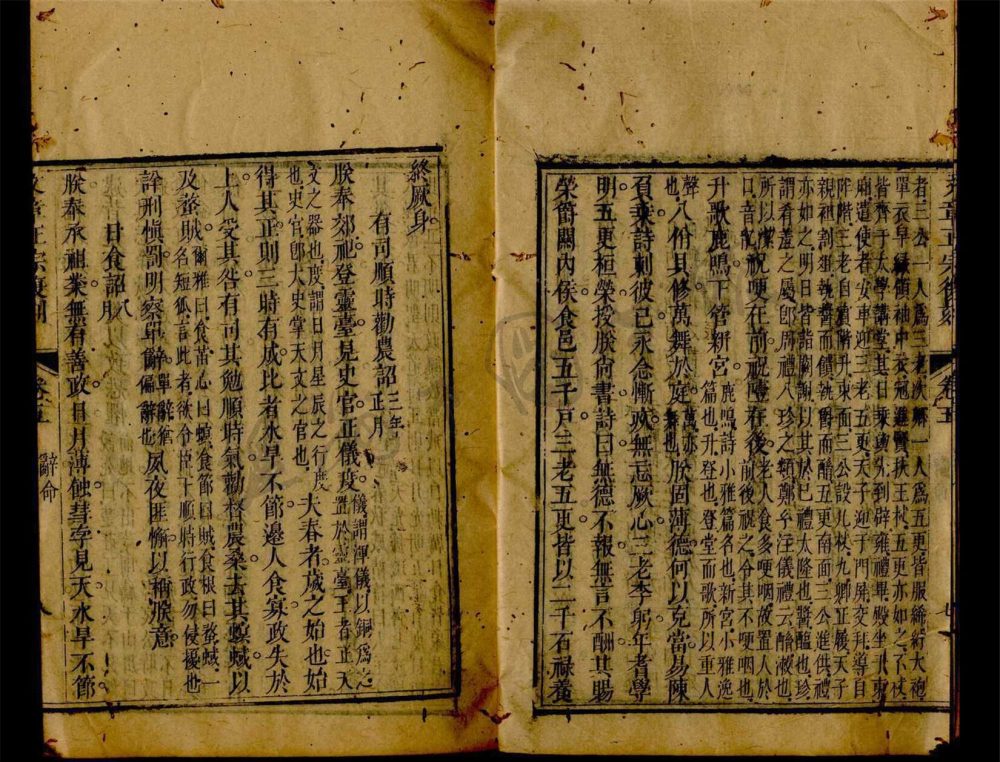 文章正宗復刻 卷五 辭命 七
者三公一人為三老次卿一人為五更皆服絺紵大袍
單衣皁緣領袖中衣冠進賢扶王杖五更亦如之不杖
皆齊于太學講堂其日乘輿先到辟雍禮畢殿坐于東
廂遣使者安車迎三老五更天子迎于門屏交拜導自
阼階三老自賓階升東面三公設几杖九卿正履天子
親袒割牲執醬而饋執爵而酳五更南面三公進供禮
亦如之明日皆詣闕謝以其於己禮太隆也醬醢也珍
謂肴羞之屬即周禮八珍之類鄭玄注儀禮云酳漱也
所以潔口音胤祝哽在前祝噎在後。老人食多哽咽故置人於前後祝之令其不哽咽也
升歌鹿鳴下管新宮。鹿鳴詩小雅篇名也新宮小雅逸篇也升登也登堂而歌所以重人
聲也八佾具修萬舞於庭。萬亦舞也朕固薄德何以克當易陳
負乘詩刺彼已永念慚疚無忘厥心三老李躬年耆學
明五更桓榮授朕尚書詩曰無德不報無言不酬其賜
榮爵關內侯食邑五千戶三老五更皆以二千石祿養
終厥身。
有司順時勸農詔三年正月
朕奉郊祀登靈臺見史官正儀度儀謂渾儀以銅為之置於靈臺王者正天
文之器也度謂日月星辰之行度也史官即太史掌天文之官也夫春者歲之始也始
得其正則三時有成比者水旱不節邊人食寡政失於
上人受其咎有司其勉順時氣勸督農桑去其螟蜮以
及蝥賊爾雅曰食苗心曰螟食節曰賊食根曰蝥蜮一名短狐言此者欲令臣下順時行政勿侵擾也
詳刑慎罰明察單辭單辭猶偏辭也夙夜匪懈以稱朕意。
日食詔八月
朕奉承祖業無有善政日月薄蝕彗孛見天水旱不節
文章正宗復刻 卷五 辭命 八